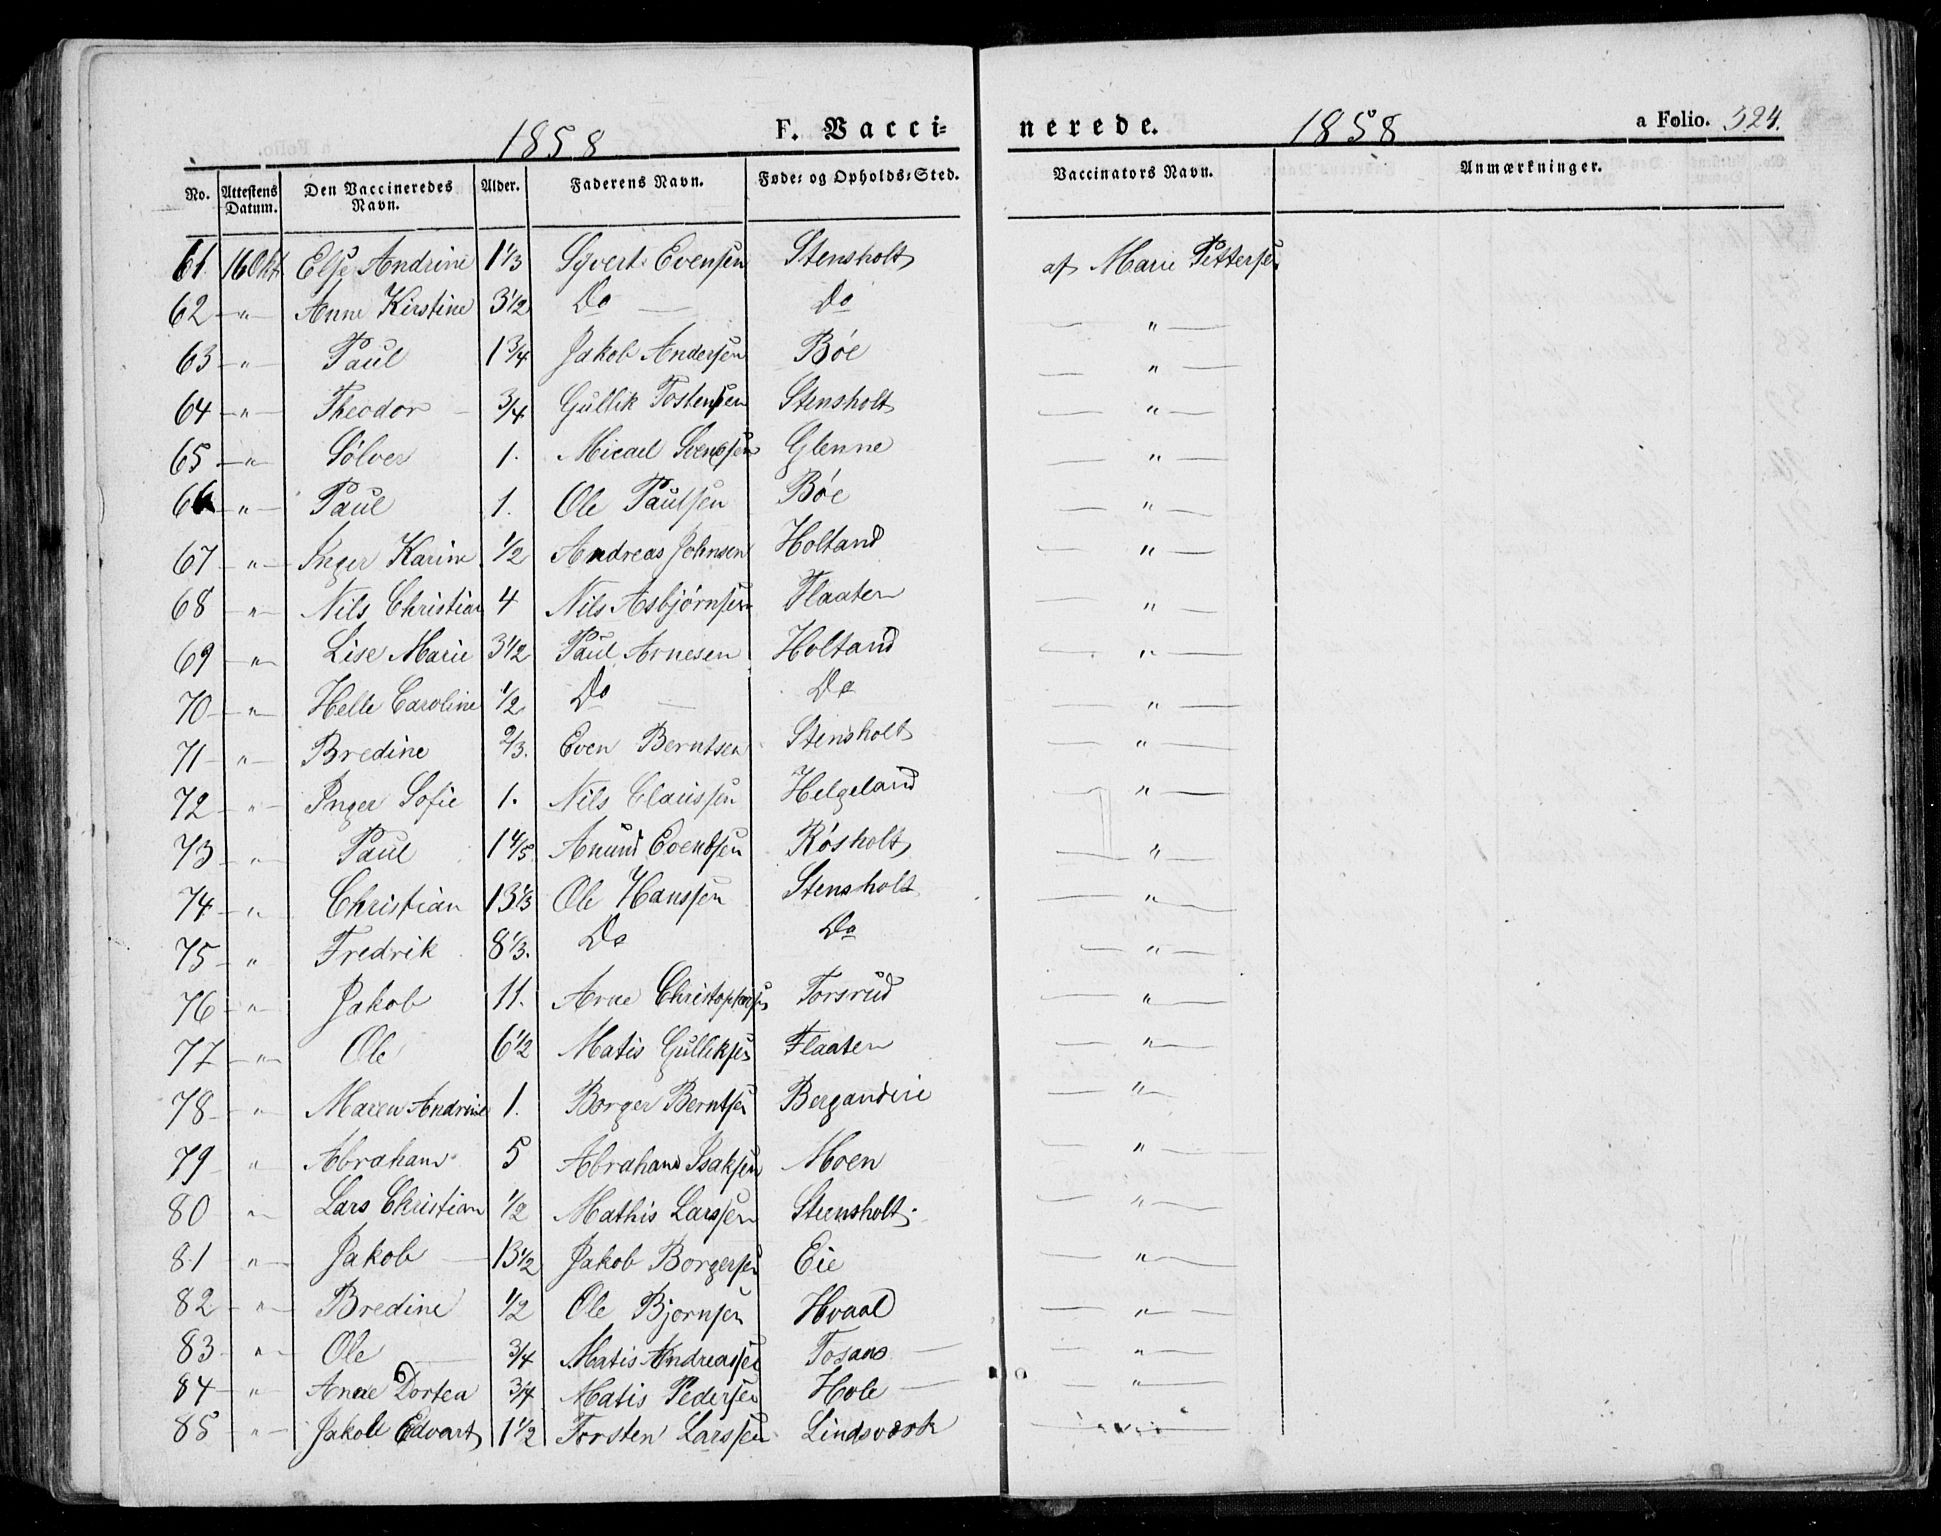 1858 F. Vacci= nerede. 1858 a Folio. 324.
No. Attestens Datum. Den Vaccineredes Navn. Alder. Faderens Navn. Føde= og Opholds=Sted. Vaccinators Navn. Anmærkninger.
61. 16 Okt Else Andrine 1 1/3 Syvert Evensen Stensholt af Marie Pettersen
62 " Anne Kirstine 3 1/2 Do Do "
63 " Paul 1 3/4 Jakob Andersen Bøe "
64 " Theodor 3/4 Gullik Tostensen Stensholt "
65 " Sølver 1. Micael Svensen Glenne "
66 " Paul 1. Ole Paulsen Bøe "
67 " Inger Karine 1/2 Andreas Johnsen Holtand "
68 " Nils Christian 4 Nils Asbjørnsen Flaaten "
69 " Lise Marie 3 1/2 Paul Arnesen Holtand "
70 " Helle Caroline 1/2 Do Do "
71 " Bredine 2/3. Even Berntsen Stensholt "
72 " Inger Sofie 1. Nils Claussen Helgeland "
73 " Paul 1 4/5 Anund Evensen Røsholt "
74 " Christian 13 1/3 Ole Hanssen Stensholt "
75 " Fredrik 8 1/3. Do Do "
76 " Jakob 11. Arne Christophersen Forsrud "
77 " Ole 6 1/2 Matis Gulliksen Flaaten "
78 " Maren Andrine 1. Borger Berntsen Bergandeie "
79 " Abraham 5 Abraham Isaksen Moen "
80 " Lars Christian 1/2 Mathis Larssen Steensholt "
81 " Jakob 13 1/2 Jakob Borgersen Eie "
82 " Bredine 1/2 Ole Bjornsen Hvaal "
83 " Ole 3/4 Matis Andreassen Tosaas "
84 " Anne Dortea 3/4 Matis Pedersen Hole "
85 " Jakob Edvart 1 1/2 Torsten Larssen Lindsværk "